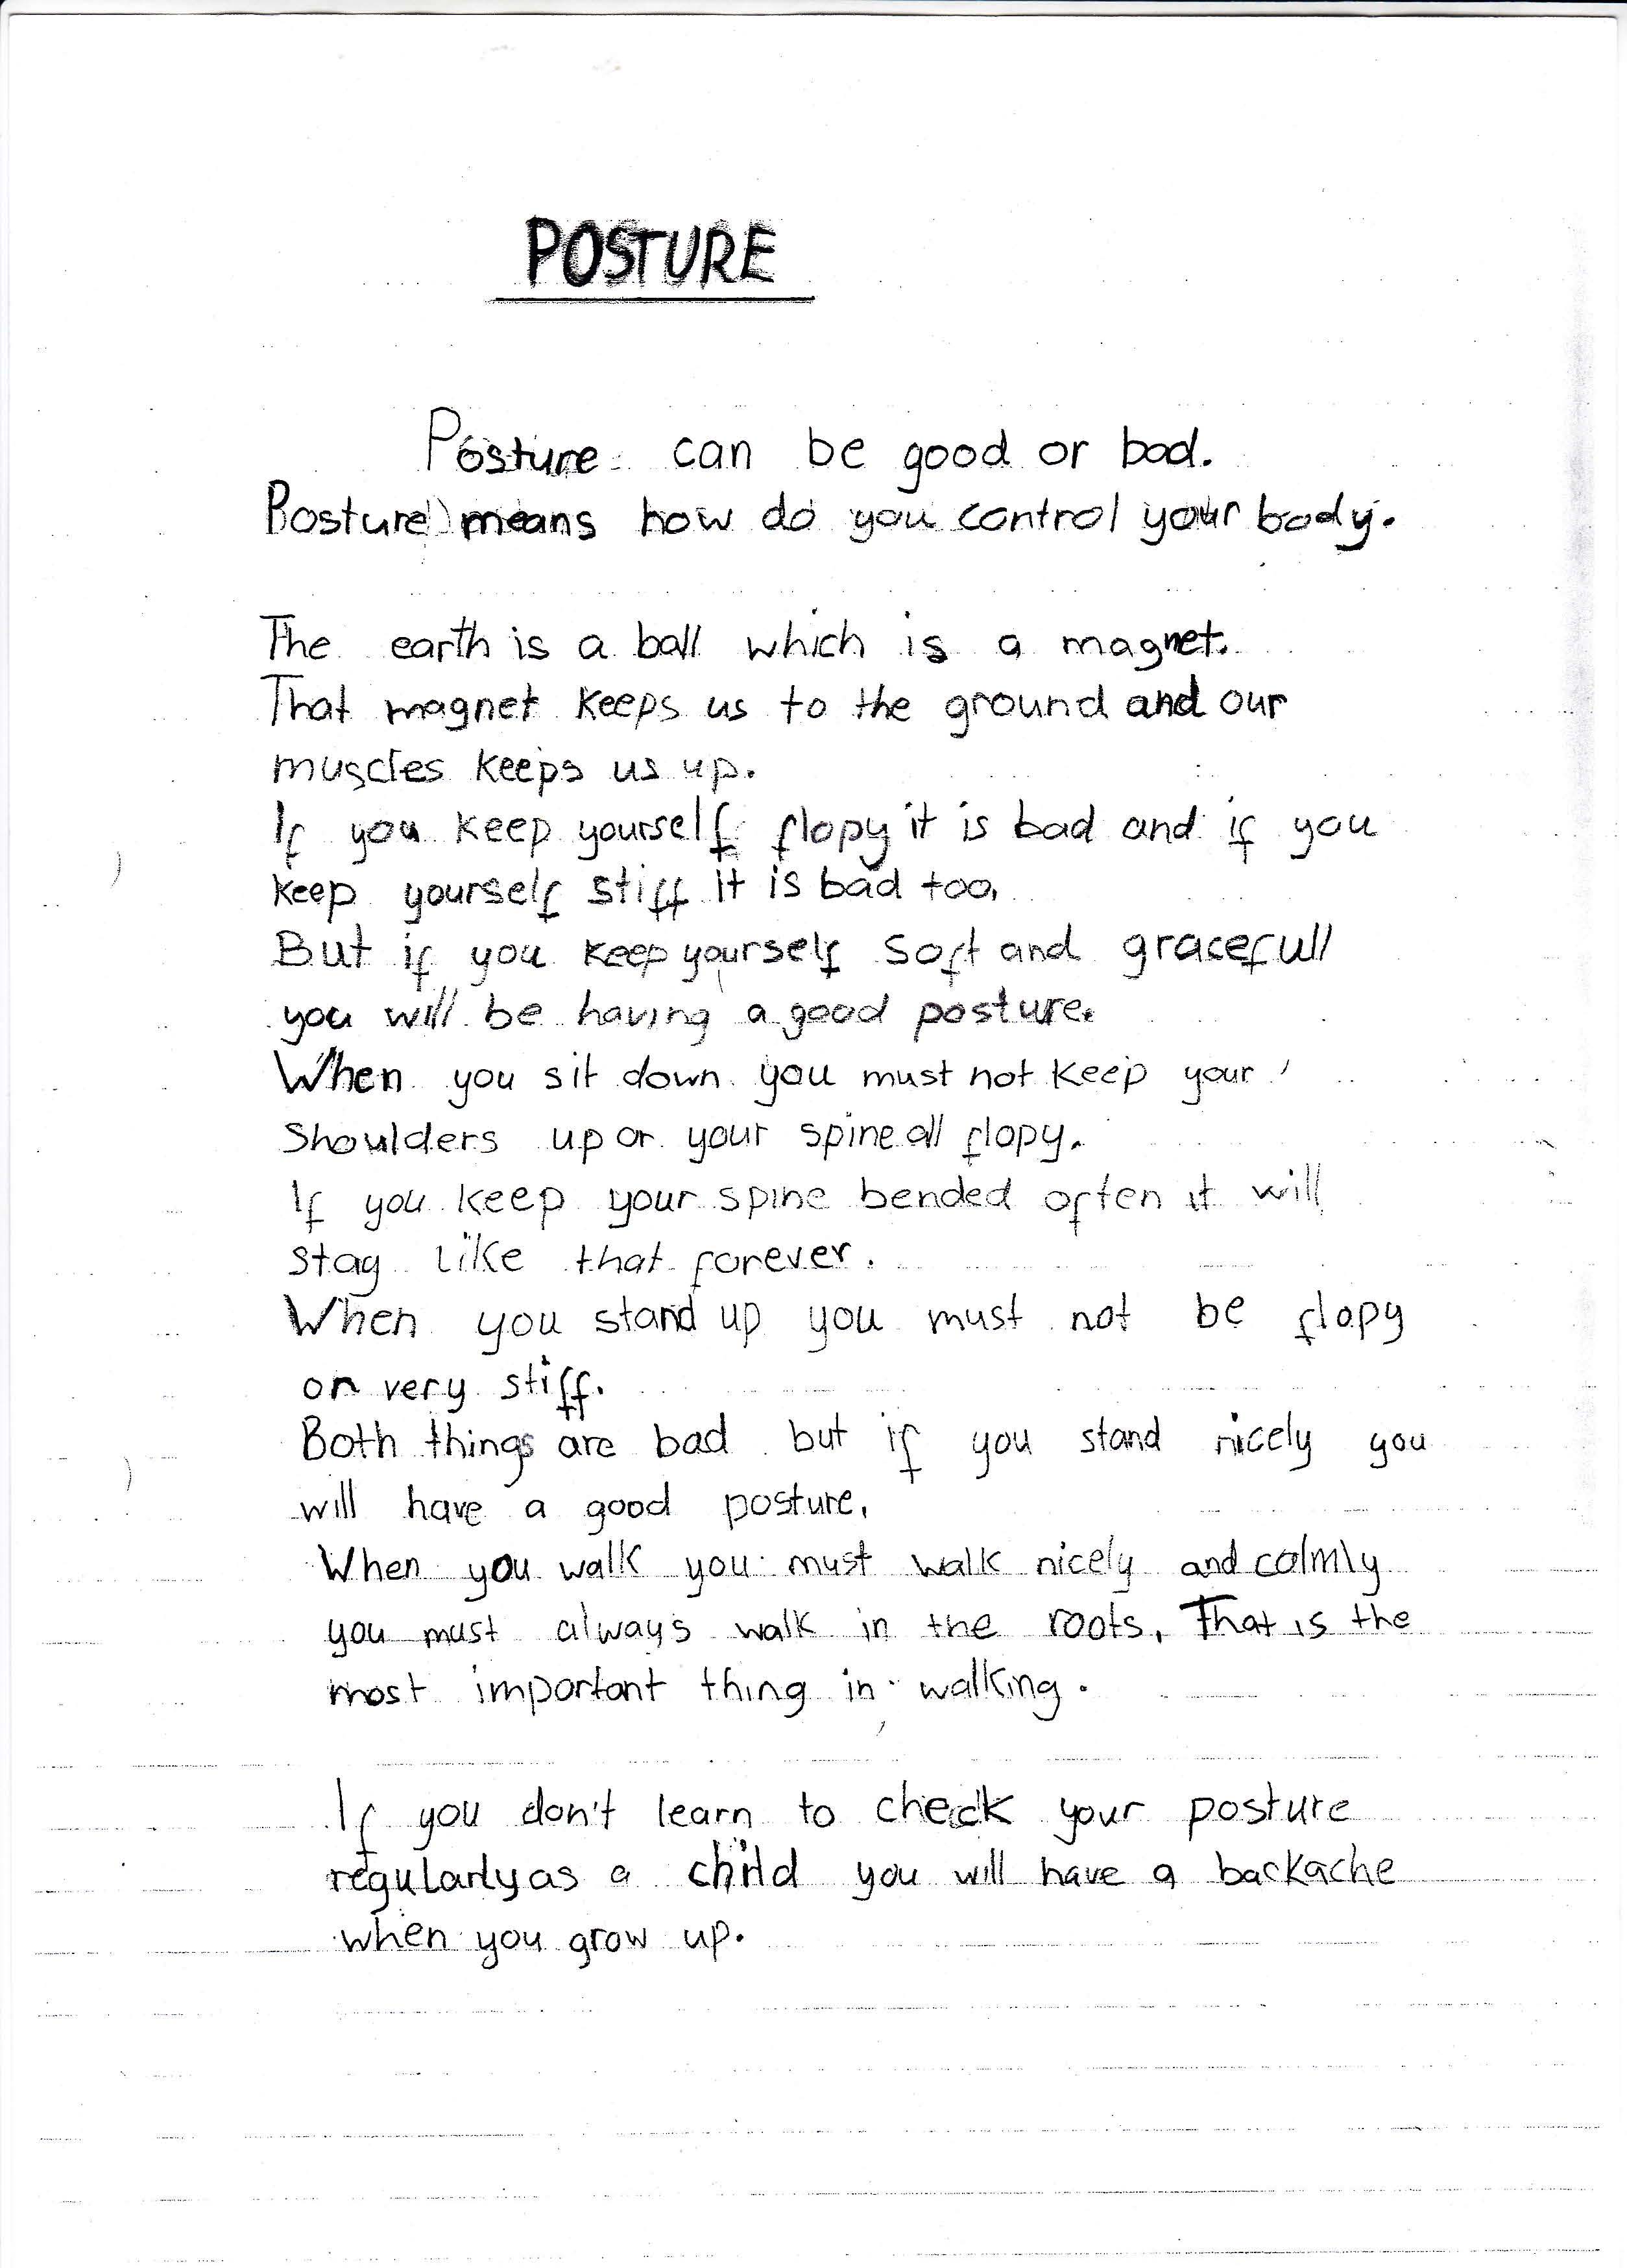 POSTURE
Posture can be good or bad.
Posture means how do you control your body.
The earth is a ball which is a magnet.
That magnet keeps us to the ground and our
muscles keeps us up.
If you keep yourself flopy it is bad and if you
keep yourself stiff it is bad too,
But if you keep yourself soft and gracefull
you will be having a good posture.
When you sit down you must not keep your
shoulders up or your spine all flopy.
If you keep your spine bended often it will
stay like that forever.
When you stand up you must not be flopy
or very stiff.
Both things are bad but if you stand nicely you
will have a good posture,
When you walk you must walk nicely and calmly
you must always walk in the roots, That is the
most important thing in walking.
If you don't learn to check your posture
regularly as a child you will have a backache
when you grow up.